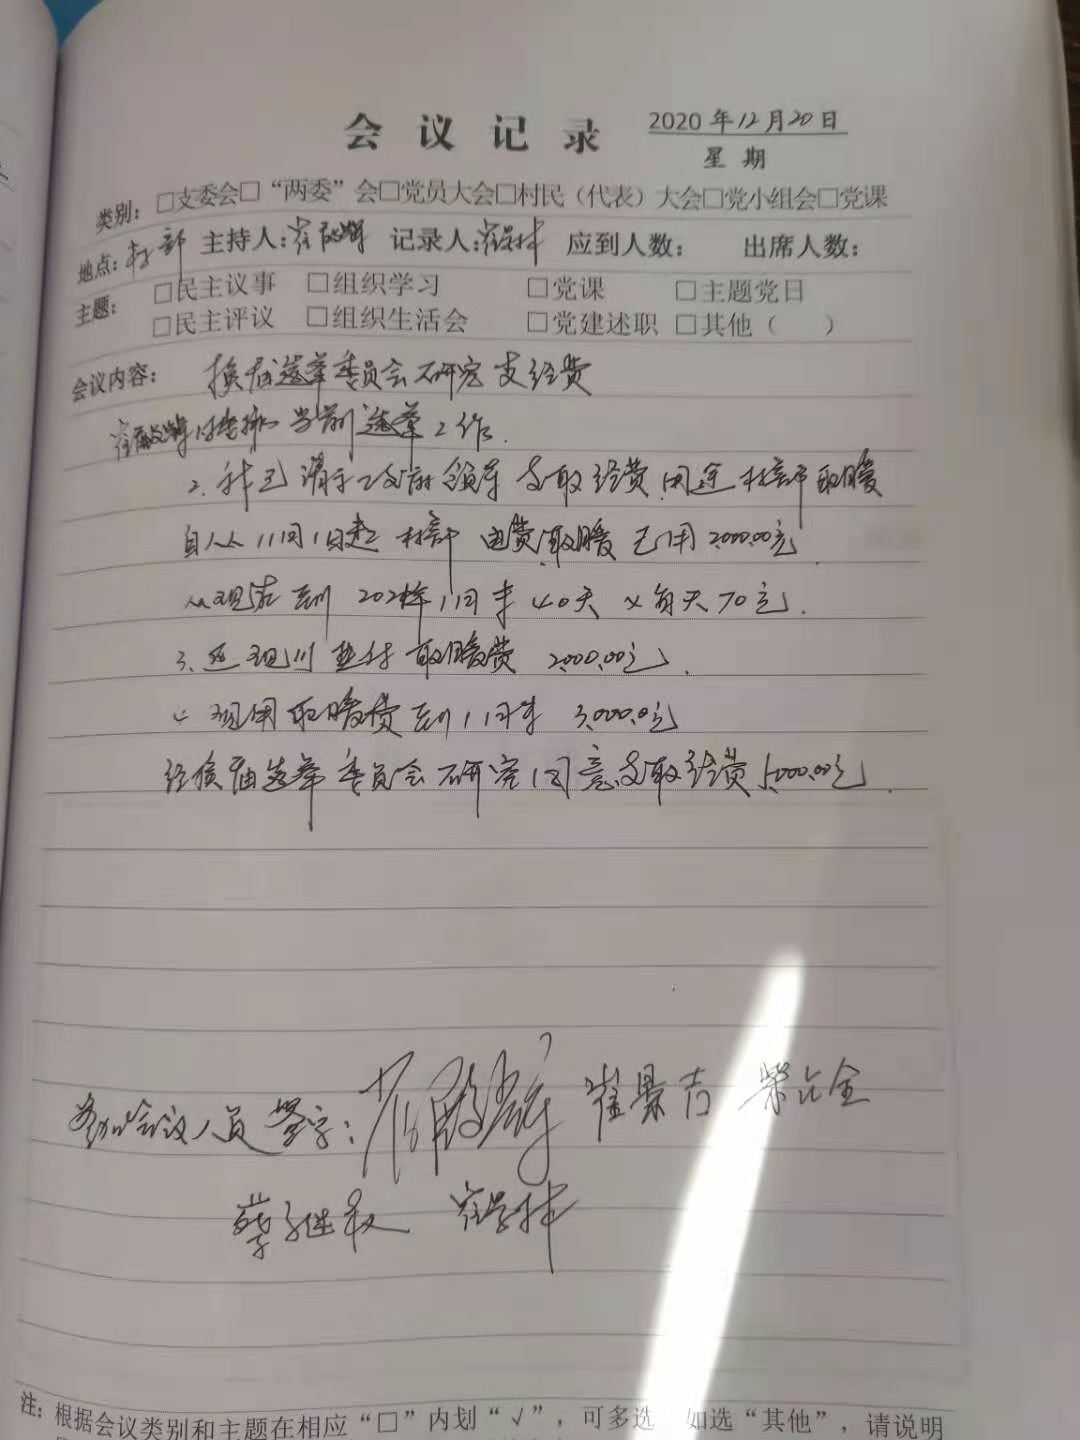 会议记录
2020年12月20日
星期
类别：□支委会□“两委”会□党员大会□村民（代表）大会□党小组会□党课
地点：村部 主持人：崔 记录人：崔学林 应到人数： 出席人数：
主题： □民主议事 □组织学习 □党课 □主题党日
□民主评议 □组织生活会 □党建述职 □其他（ ）
会议内容： 换届选举委员会研究支经费
当前选举工作.
2. 我已请示 政府领导 支取经费 用途 村部取暖
自从11月1日起 村部 电费取暖已用2000.00元
从现在到2021年1月末40天×每天70元.
3. 还 垫付取暖费 2000.00元.
4 现用取暖费到1月末 3,000.0元
经换届选举委员会研究同意支取经费5000.00元.
参加会议人员签字： 崔景吉 柴 金
继 崔学林
注：根据会议类别和主题在相应“□”内划“√”，可多选 如选“其他”，请说明